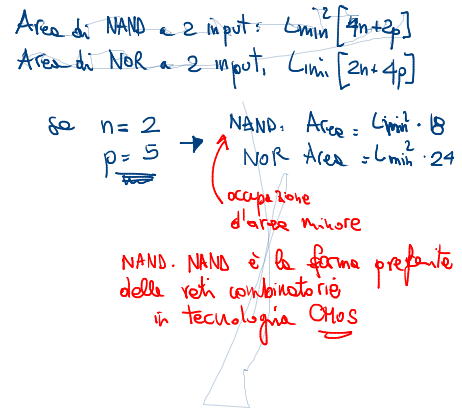 Area di NAND a 2 input: Lmin² [4n+2p]
Area di NOR a 2 input, Lmin [2n+4p]
se n = 2 → NAND: Area = Lmin² · 18
p = 5 NOR Area = Lmin² · 24
occupazione
d'area minore
NAND. NAND è la forma preferita
delle reti combinatorie
in tecnologia CMOS